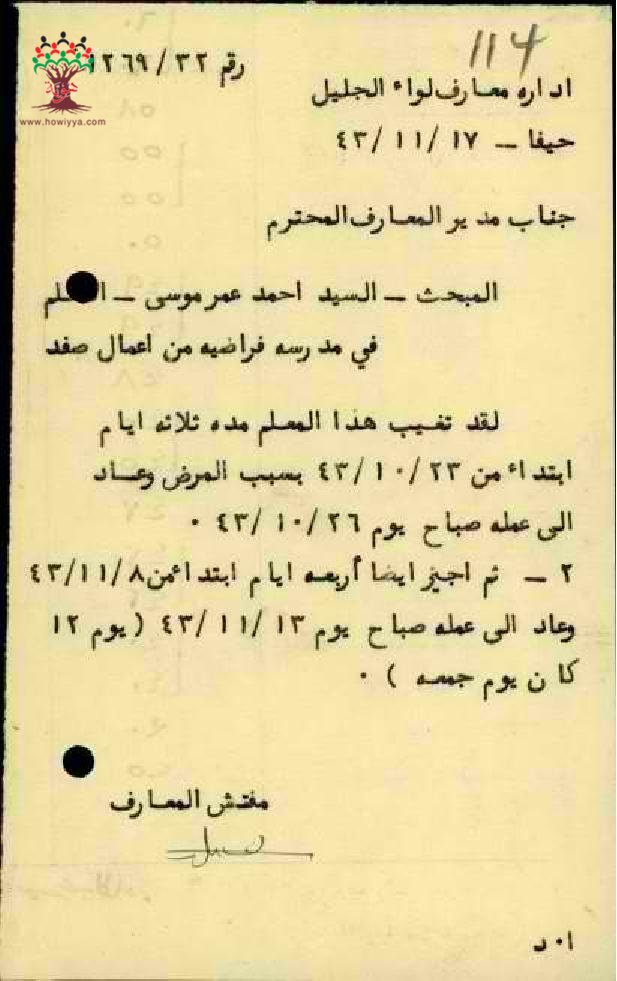 114
رقم ٣٢ / ١٢٦٩
www.howiyya.com
اداره معارف لواء الجليل
حيفا – ١٧ /١١ /٤٣
جناب مدير المعارف المحترم
المبحث – السيد احمد عمر موسى –
في مدرسه فراضيه من اعمال صفد
لقد تغيب هذا المعلم مده ثلاثه ايام
ابتداء من ٢٣ /١٠ /٤٣ بسبب المرض وعاد
الى عمله صباح يوم ٢٦ /١٠ /٤٣ ٠
٢ – ثم اجيز ايضا أربعه ايام ابتداء من ٨ /١١ /٤٣
وعاد الى عمله صباح يوم ١٣ /١١ /٤٣ ( يوم ١٢
كان يوم جمعه ) ٠
مفتش المعارف
ا٠د